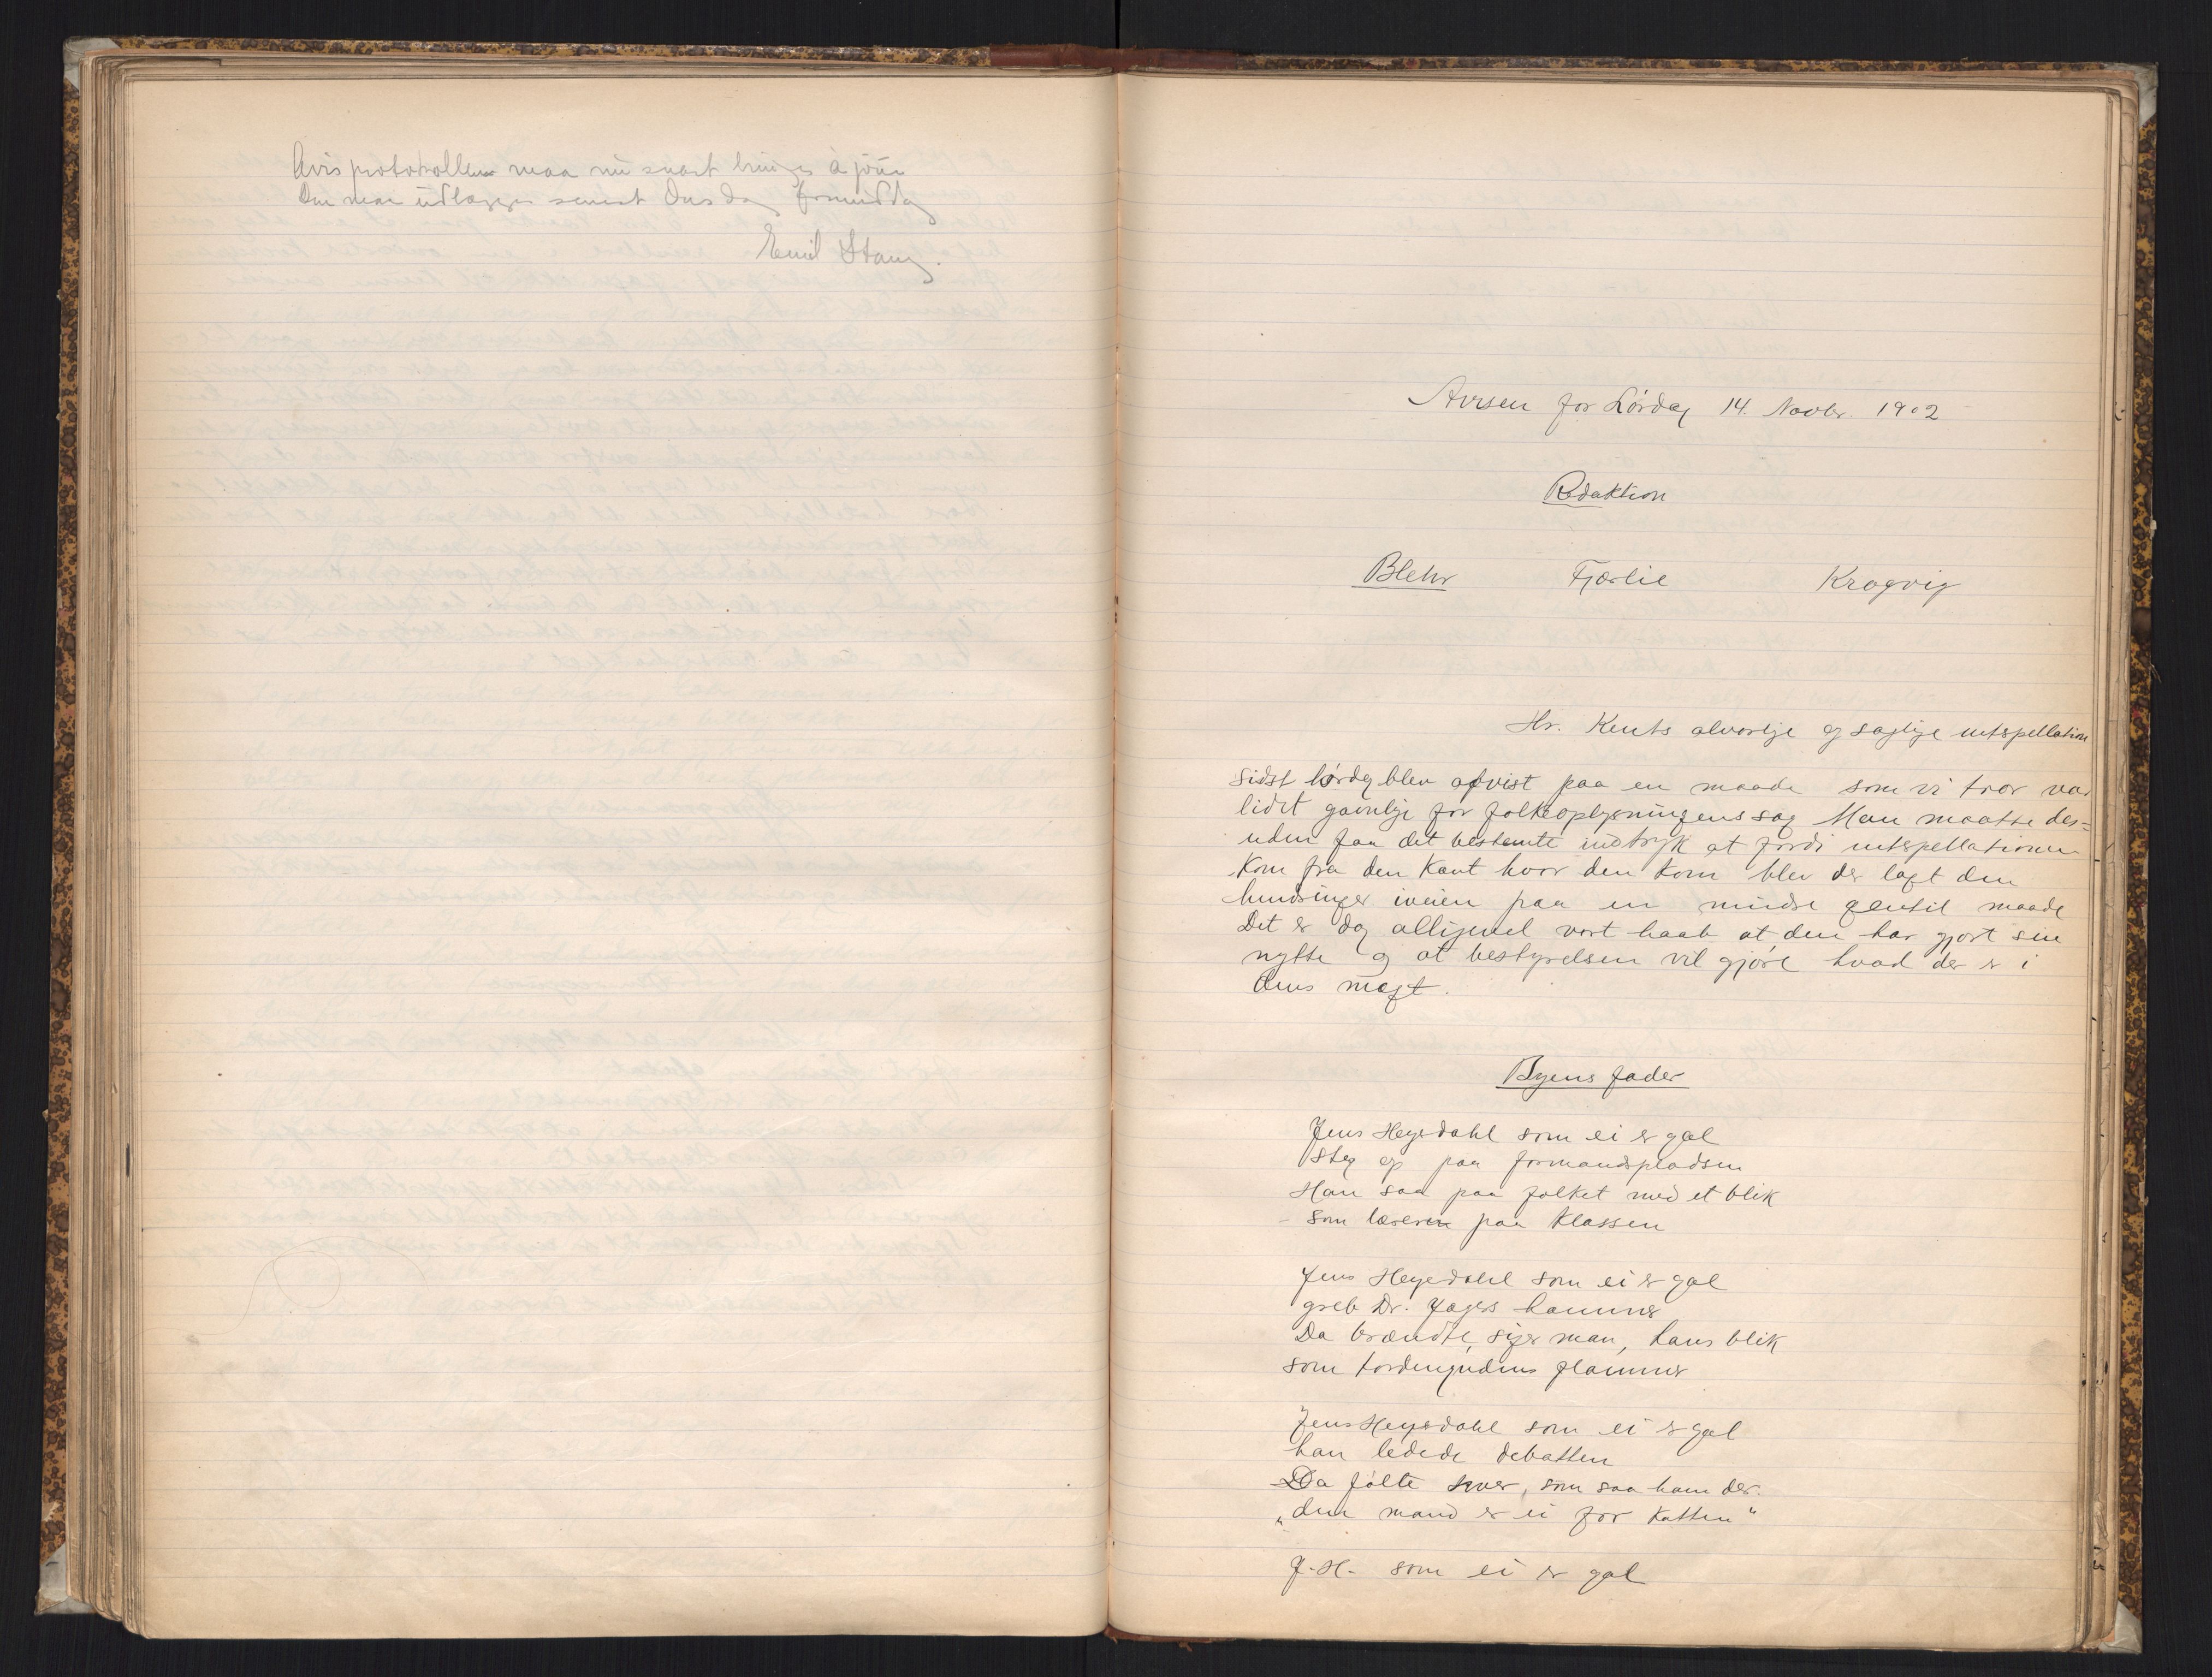 Avisprotokollen maa nu snart bringes à jour
Den maa udlægges senest Onsdag formiddag
Emil Stang.
Avisen for Lørdag 14. Novbr. 1902
Redaktion
Blehr Fjærlie Krogvig
Hr. Kents alvorlige og saglige interpellation
sidst lørdag blev afvist paa en maade som vi tror var
lidet gavnlige for folkeoplysningens sag Man maatte des=
uden faa det bestemte indtryk at fordi interpellationen
kom fra den Kant hvor den kom blev der lagt den
hindringer iveien paa en mindre gentil maade
Det er dog alligevel vort haab at den har gjort sin
nytte og at bestyrelsen vil gjøre hvad der er i
dens magt.
Byens fader
Jens Heyerdahl som ei er gal
Steg op paa formandspladsen
Han saa paa folket med et blik
som læreren paa Klassen
Jens Heyerdahl som ei er gal
greb Dr. Jægers hammer
Da brændte, siger man, hans blik
som tordengudens flammer
Jens Heyerdahl som ei er gal
han ledede debatten
Da følte hver, som saa ham der.
„den mand er ei for Katten“
J. H. som ei er gal